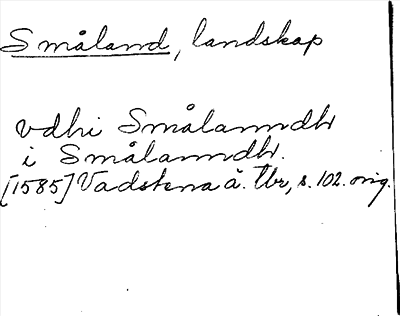 Småland, landskap
vdhi Smålanndh
i Smålanndh.
[1585] Vadstena ä. Tbr, s. 102. orig.